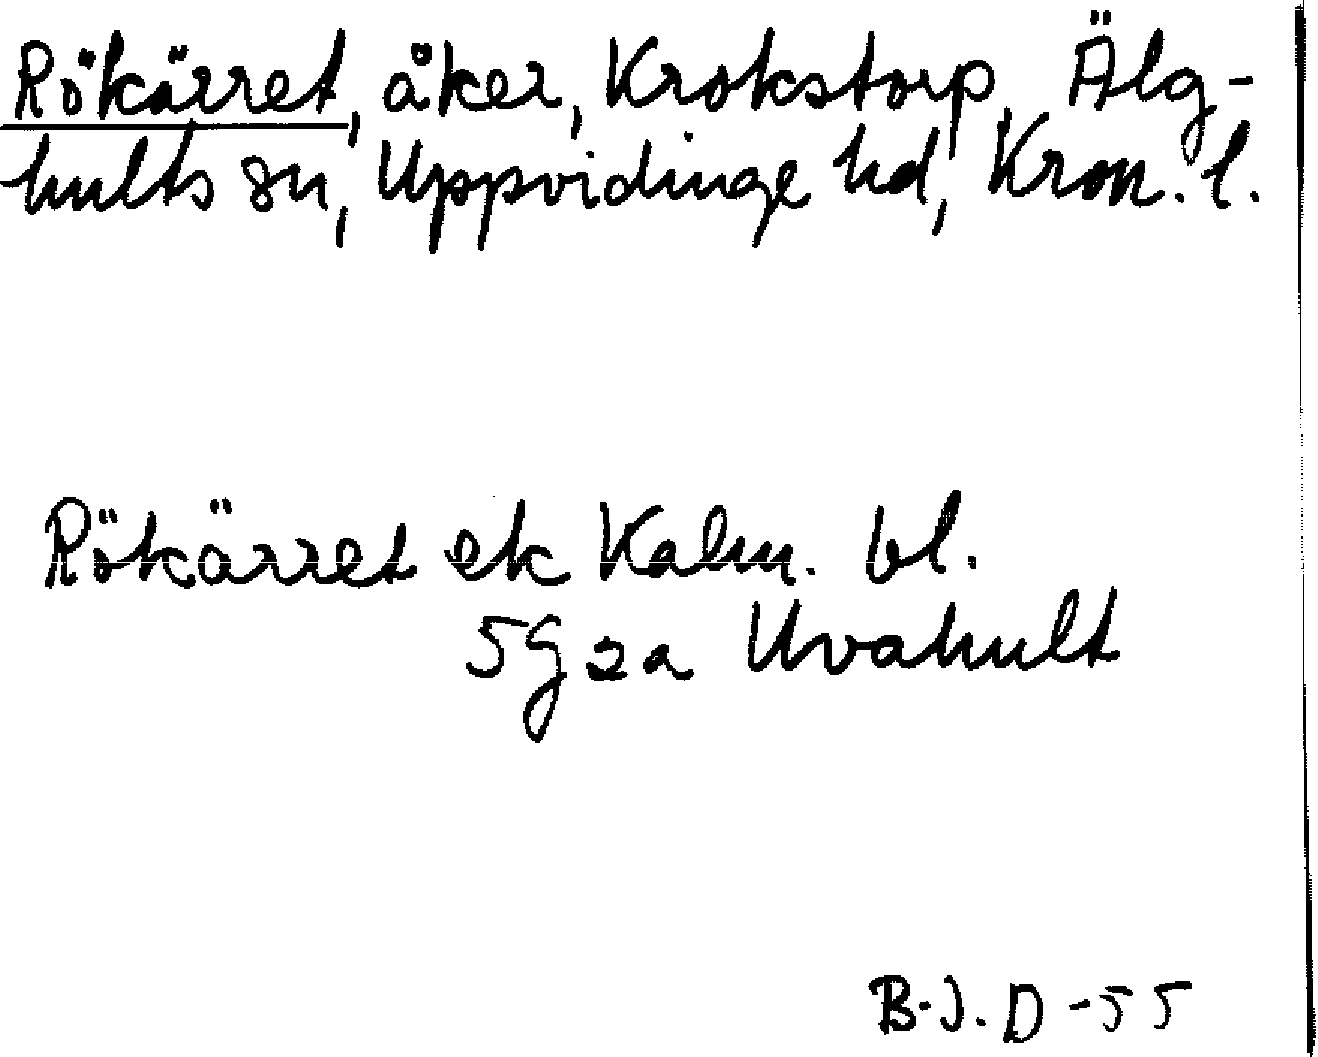 Rökärret, åker, Krokstorp, Älg-
hults sn, Uppvidinge hd, Kron. l.
Rökärret ek Kalm. bl.
5G 2a Uvahult
B.J.D-55